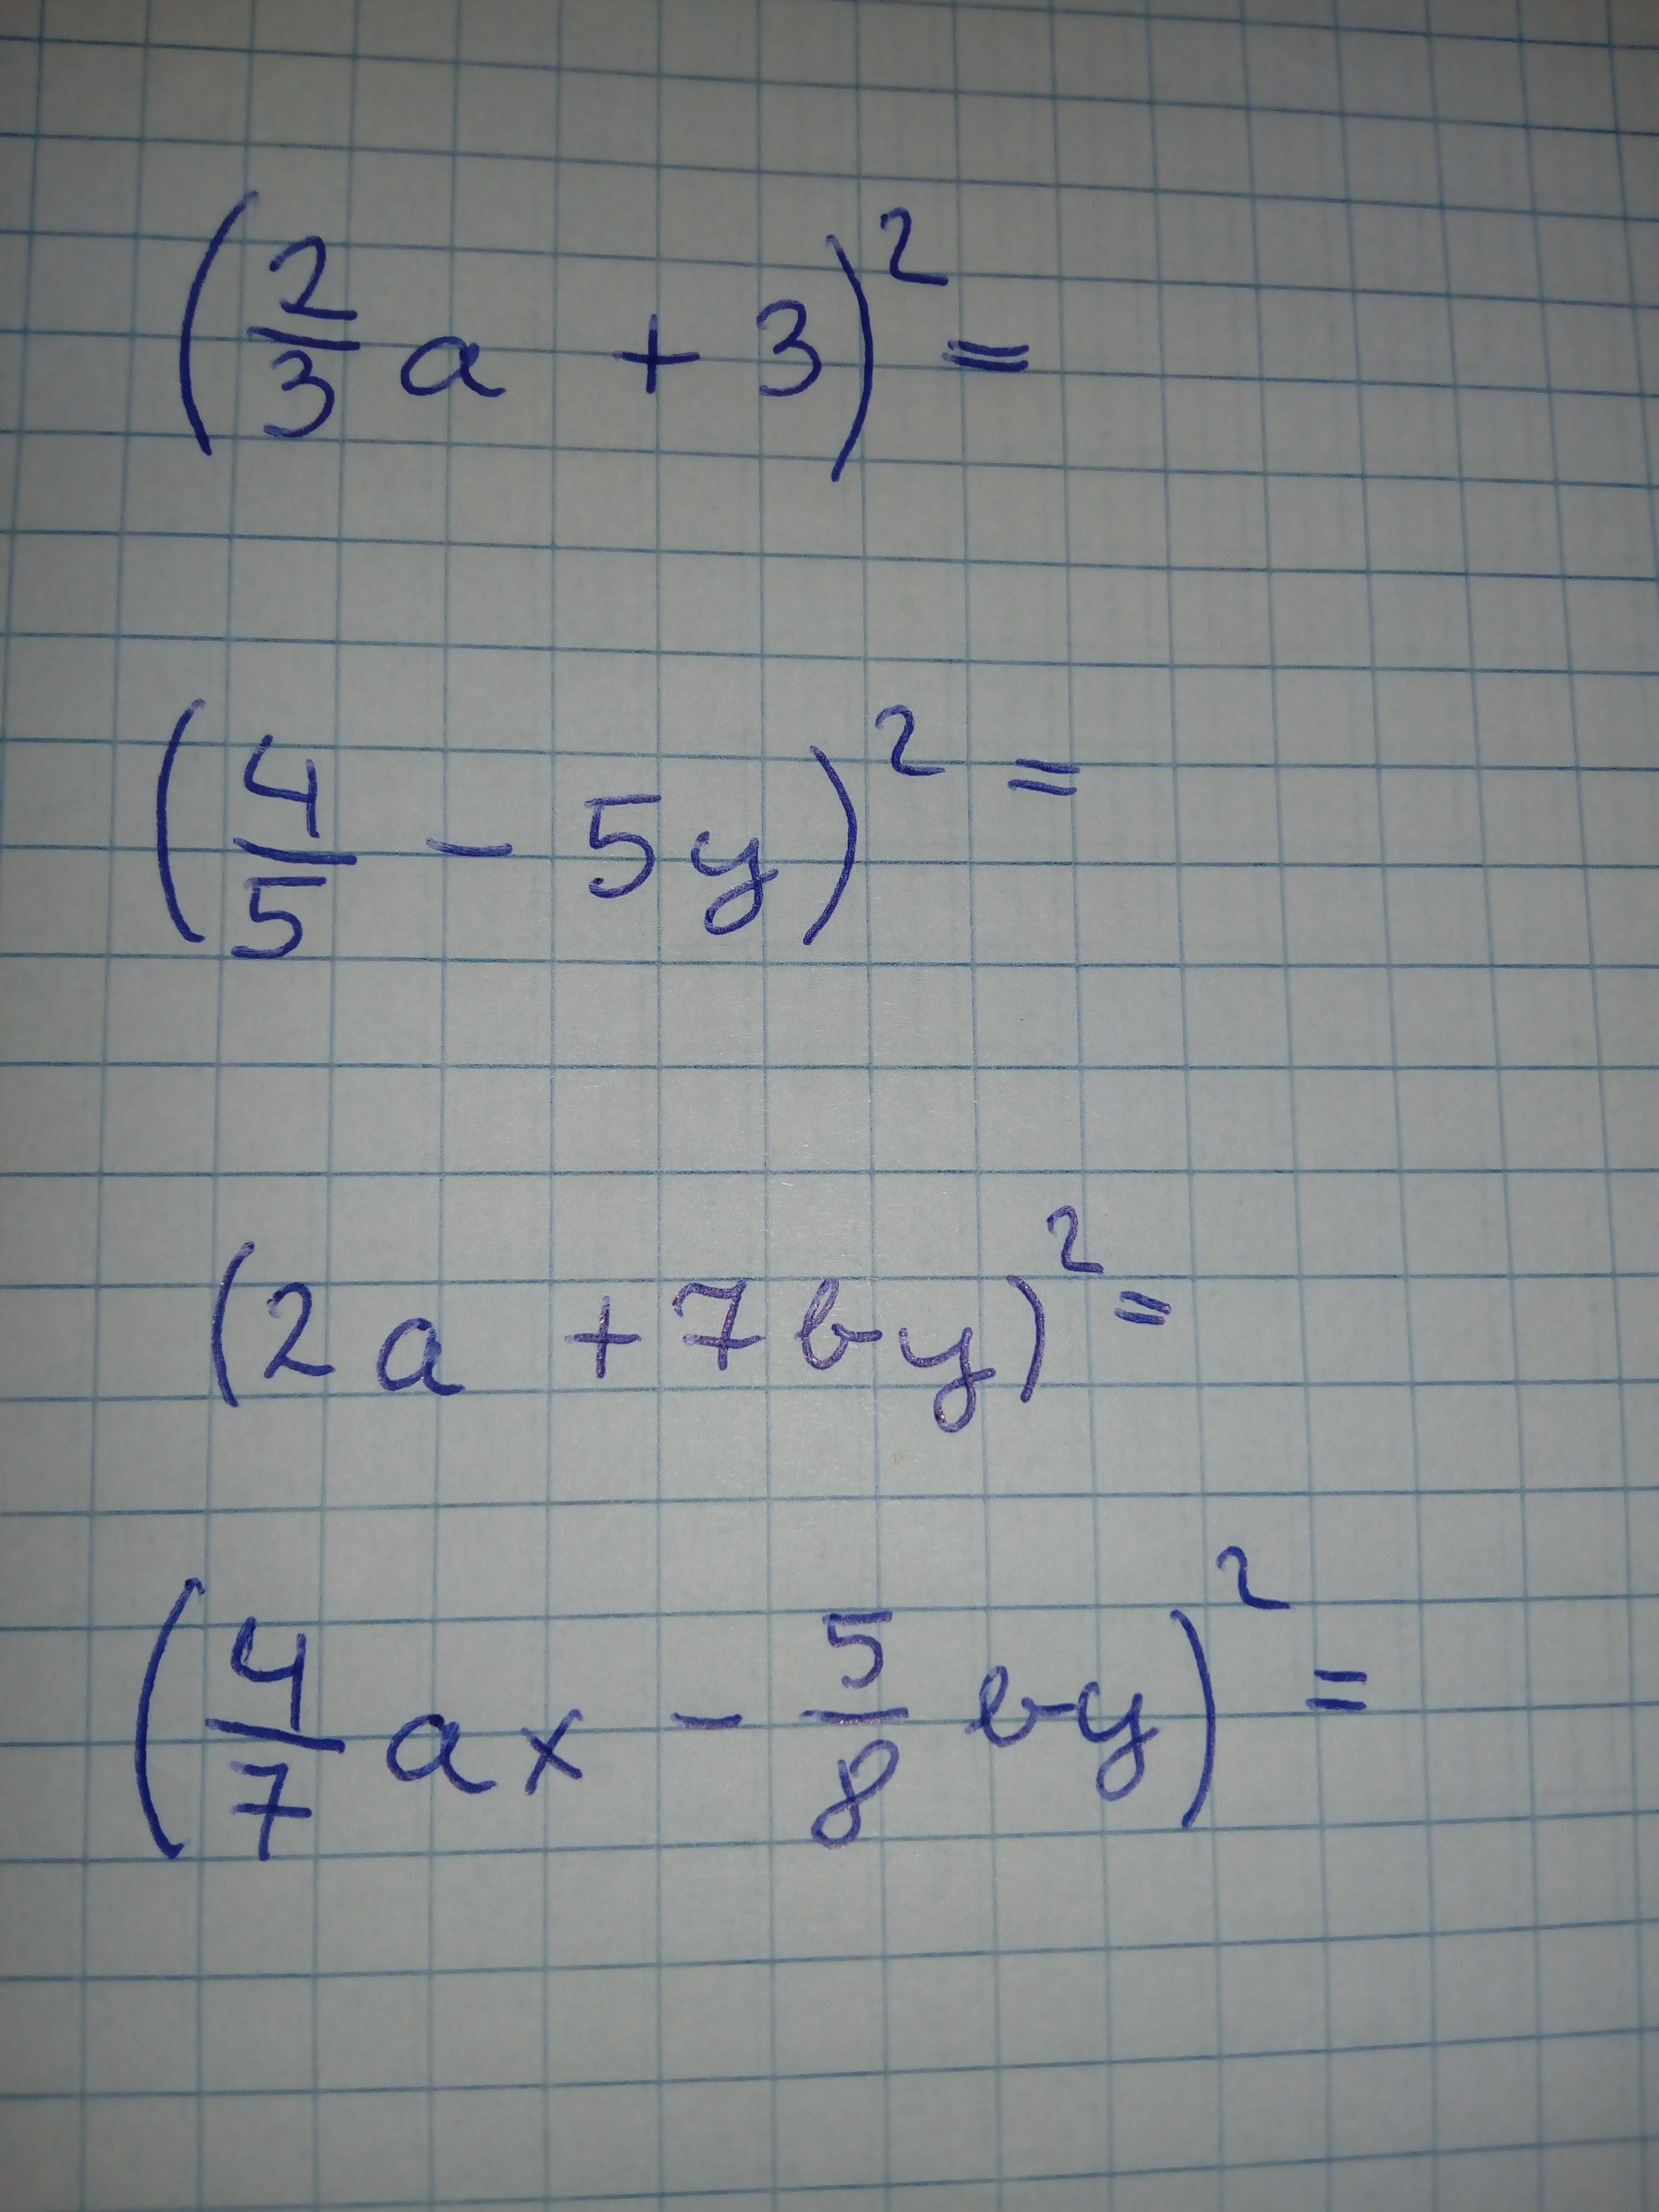 (2/3 a + 3)² =
(4/5 - 5y)² =
(2a + 7by)² =
(4/7 ax - 5/8 by)² =